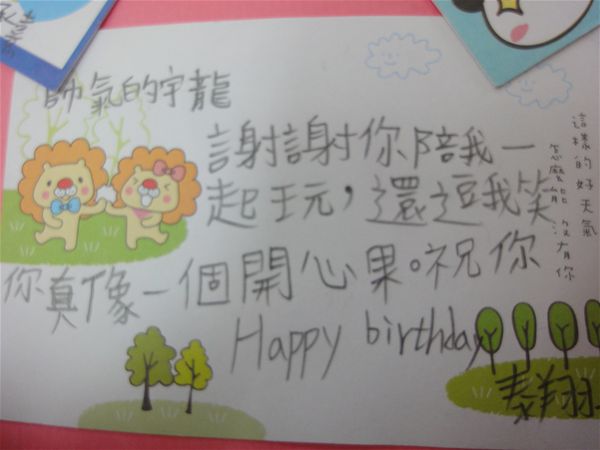 帥氣的宇龍
謝謝你陪我一
起玩，還逗我笑
你真像一個開心果。祝你
Happy birthday
泰翔
這樣的好天氣
怎麼能沒有你